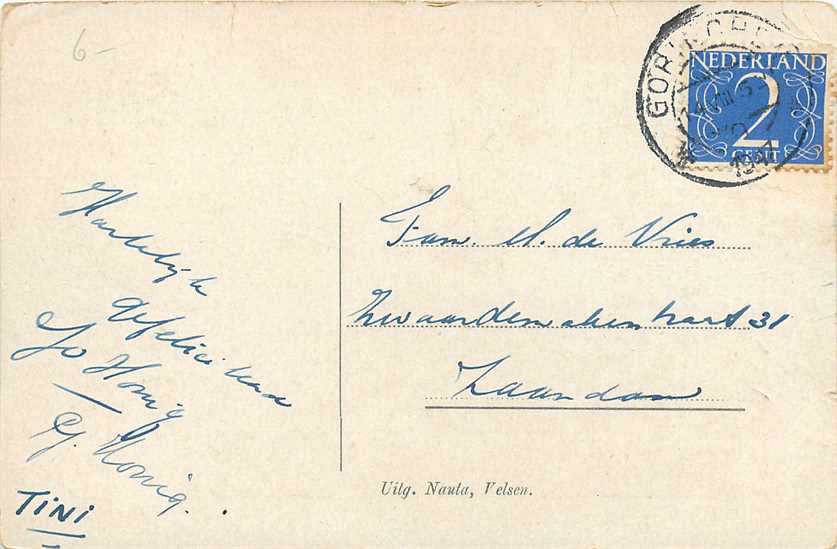 6-
NEDERLAND
2
CENT
GORINCHEM
1947
Hartelijk
Gefeliciteerd
Jo Honig
G. Honig.
TINI
Fam. M. de Vries
Zwaardemakerstraat 31
Zaandam
Uitg. Nauta, Velsen.